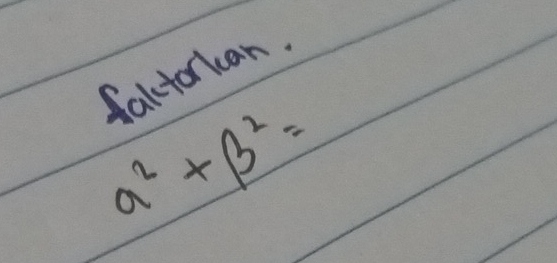 faktorkan.
a² + β² =